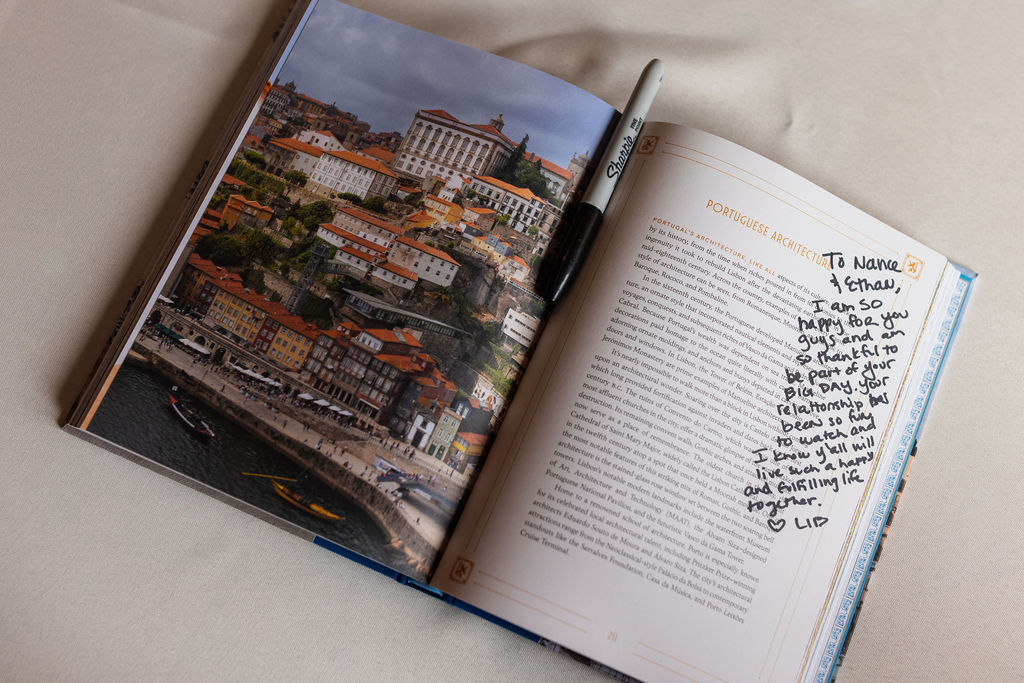 Sharpie
FINE POINT
PORTUGUESE ARCHITECTURE
PORTUGAL'S ARCHITECTURE, LIKE ALL aspects of its
by its history, from the time when riches poured in from
ingenuity it took to rebuild Lisbon after the devastating
mid-eighteenth century. Across the country, examples of
style of architecture can be seen, from Romanesque,
Baroque, Rococo, and Pombaline.
In the sixteenth century, the Portuguese developed
ture, an ornate style that incorporated nautical elements
voyages, conquests, and subsequent riches of Vasco da Gama
Cabral. Because Portugal's wealth was dependent on
decorations paid homage to the ocean quite literally with
adorning ornate moldings, and anchors and buoys depicted in
doors and windows. In Lisbon, the Tower of Belém,
Jerónimos Monastery are prime examples of Manueline
It's nearly impossible to walk more than a block in Lisbon
upon an architectural wonder. Soaring over the city is Castelo
which long provided fortification against invaders and dates
century B.C. The ruins of Convento do Carmo, which
most affluent churches in the city, offer a dramatic glimpse of
destruction. Its remaining ornate walls, Gothic arches, and
now serve as a place of remembrance. The oldest church
Cathedral of Saint Mary Major, widely called the Lisbon
in the twelfth century atop a spot that once held a Moorish
the most notable features of this striking mix of Roman, Gothic, and
architecture is the stained-glass rose window set between the two soaring bell
towers. Lisbon's notable modern landmarks include the waterfront Museum
of Art, Architecture and Technology (MAAT), the Álvaro Siza–designed
Portuguese National Pavilion, and the futuristic Vasco da Gama Tower.
Home to a renowned school of architecture, Porto is especially known
for its celebrated local architectural talent, including Pritzker Prize–winning
architects Eduardo Souto de Moura and Álvaro Siza. The city's architectural
attractions range from the Neoclassical-style Palácio da Bolsa to contemporary
standouts like the Serralves Foundation, Casa da Música, and Porto Leixões
Cruise Terminal.
To Nance
& Ethan,
I am so
happy for you
guys and am
so thankful to
be part of your
BIG DAY. your
relationship has
been so fun
to watch and
I know y'all will
live such a happy
and fulfilling life
together.
♡ LIB